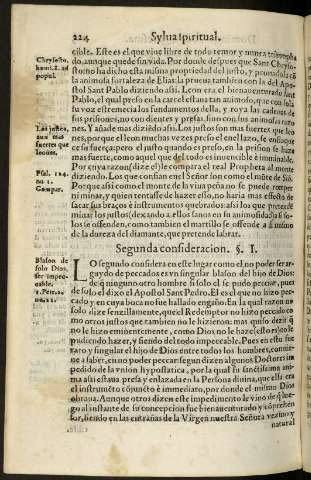 224 Sylua spiritual.
cible. Este es el que viue libre de todo temor y nunca
do, aunque quede sin vida. Por donde despues que Sant Chryso-
stomo ha dicho esta misma propriedad del justo, y prouadola
la animosa fortaleza de Elias: la prueua tambien con la del Apo-
stol Sant Pablo diziendo assi. Leon era el bienauenturado Sant
Pablo, el qual preso en la carcel estaua tan animoso, que con sola
su voz estremecia los fundamentos della, y roya las cadenas de
sus prisiones, no con dientes y presas, sino con sus animosas razo
nes. Y añade mas diziendo assi. Los justos son mas fuertes que leo
nes, porque el leon muchas vezes preso en el lazo, se enflaque
ce su fuerça: pero el justo quando es preso, en la prision se haze
mas fuerte, como aquel que del todo es inuencible e inminable.
Por cuya razon (dize el) le compara el real Propheta al monte
diziendo. Los que confian en el Señor son como el môte de Siô.
Porque assi como el monte de la viua peña no se puede romper
ni minar, y quien tentasse de hazer esso, no haria mas effecto de
sacar sus braços e instrumentos quebrados: assi los que pretende
minar los justos (dexando a ellos sanos en su animosidad) a si so-
los se offenden, como tambien el martillo se offende a si mismo
de la dureza del diamante, que pretende labrar.
Chrysosto.
homi. 8. ad
popul.
Los justos,
aun mas
fuertes que
leones.
Psal. 124.
nu. 1.
Compar.
Segunda consideracion. §. I.
Blason de
solo Dios,
ser impec-
cable.
1. Petr. 2.
nu. 22.
LO segundo considera en este lugar como el no poder ser ar-
guydo de peccados es vn singular blason del hijo de Dios:
de q̃ ninguno otro hombre si solo el se pudo preciar, pues
de solo el dixo el Apostol Sant Pedro. El es el que no hizo pec-
cado y en cuya boca no fue hallado engaño. En la qual razon no
solo dize senzillamente, que el Redemptor no hizo peccado co
mo otros justos que tambien no le hizieron: mas quiso dezir q̃
no le hizo eminentemente, como Dios no le haze (esto es) no le
pudiendo hazer, y siendo del todo impeccable. Pues en esto fue
raro y singular el hijo de Dios entre todos los hombres, conuie-
ne a saber, en no poder peccar segun dizen algunos Doctores im
pedido de la vnion hypostatica, por la qual su sanctissima ani-
ma assi estaua presa y enlazada en la Persona diuina, que esta era
el instrumêto côjuncto e immediato, por donde el mismo Dios
obraua. Aunque otros dizen este impedimento le vino de q̃ lue-
go al instante de su concepcion fue bienauenturado y côprehen
sor, siendo en las entrañas de la Virgen nuestra Señora vezino y
natural